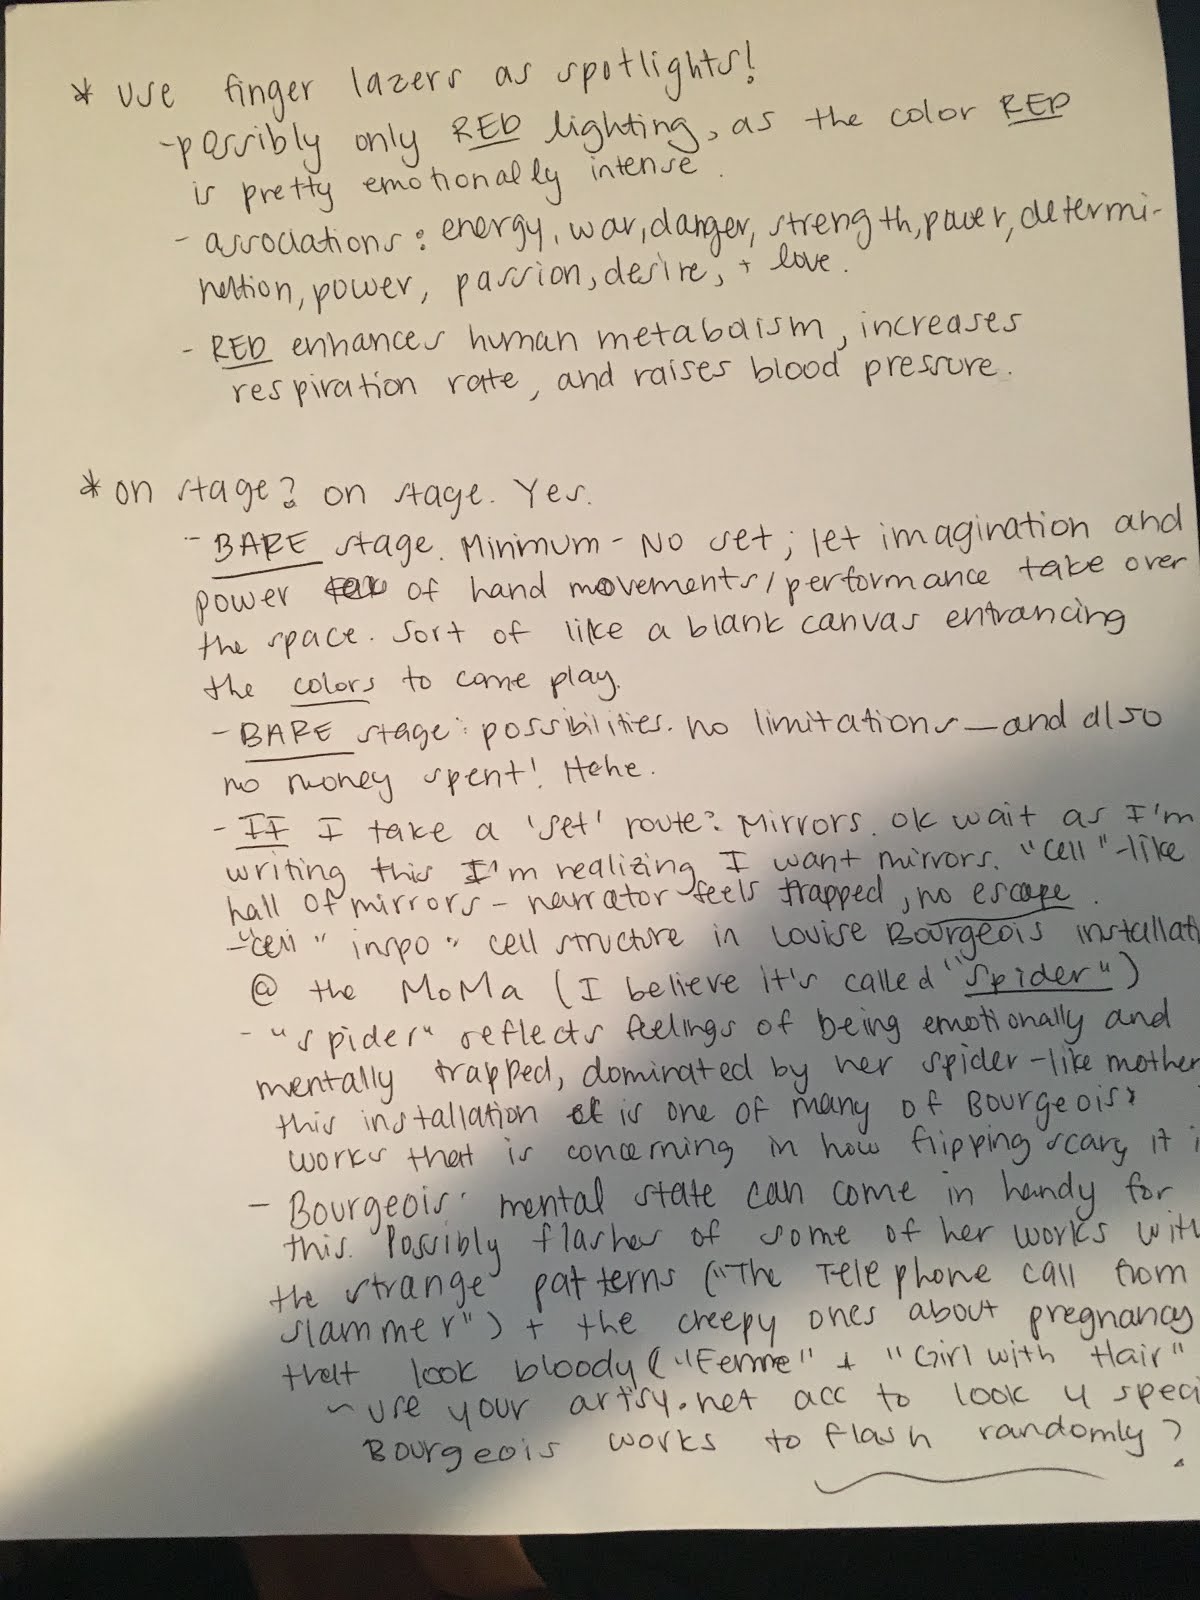 * use finger lazers as spotlights!
-possibly only RED lighting, as the color RED
is pretty emotionally intense.
- associations: energy, war, danger, strength, power, determi-
nation, power, passion, desire, + love.
- RED enhances human metabolism, increases
respiration rate, and raises blood pressure.
* on stage? on stage. Yes.
- BARE stage. Minimum - No set; let imagination and
power of hand movements/performance take over
the space. Sort of like a blank canvas entrancing
the colors to come play.
- BARE stage: possibilities. no limitations—and also
no money spent! Hehe.
- IF I take a 'set' route: Mirrors. ok wait as I'm
writing this I'm realizing I want mirrors. "cell"-like
hall of mirrors - narrator feels trapped, no escape.
- "cell" inspo: cell structure in Louise Bourgeois installati
@ the MoMa (I believe it's called "Spider")
- "spider" reflects feelings of being emotionally and
mentally trapped, dominated by her spider-like mother
this installation is one of many of Bourgeois'
works that is concerning in how flipping scary it i
- Bourgeois' mental state can come in handy for
this. Possibly flashes of some of her works with
the strange patterns ("The Telephone call from
slammer") + the creepy ones about pregnancy
that look bloody ("Femme" + "Girl with Hair"
~ use your artsy.net acc to look u speci
Bourgeois works to flash randomly?